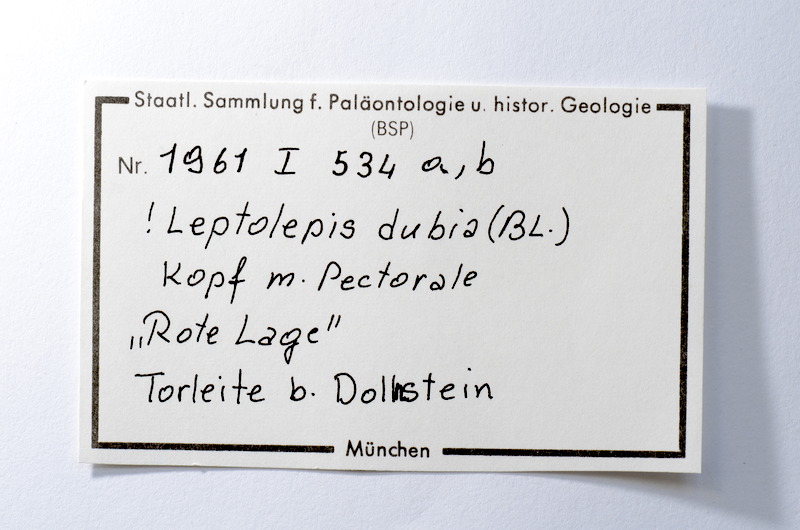 Staatl. Sammlung f. Paläontologie u. histor. Geologie
(BSP)
Nr. 1961 I 534 a, b
! Leptolepis dubia (BL.)
Kopf m. Pectorale
„Rote Lage"
Torleite b. Dollnstein
München